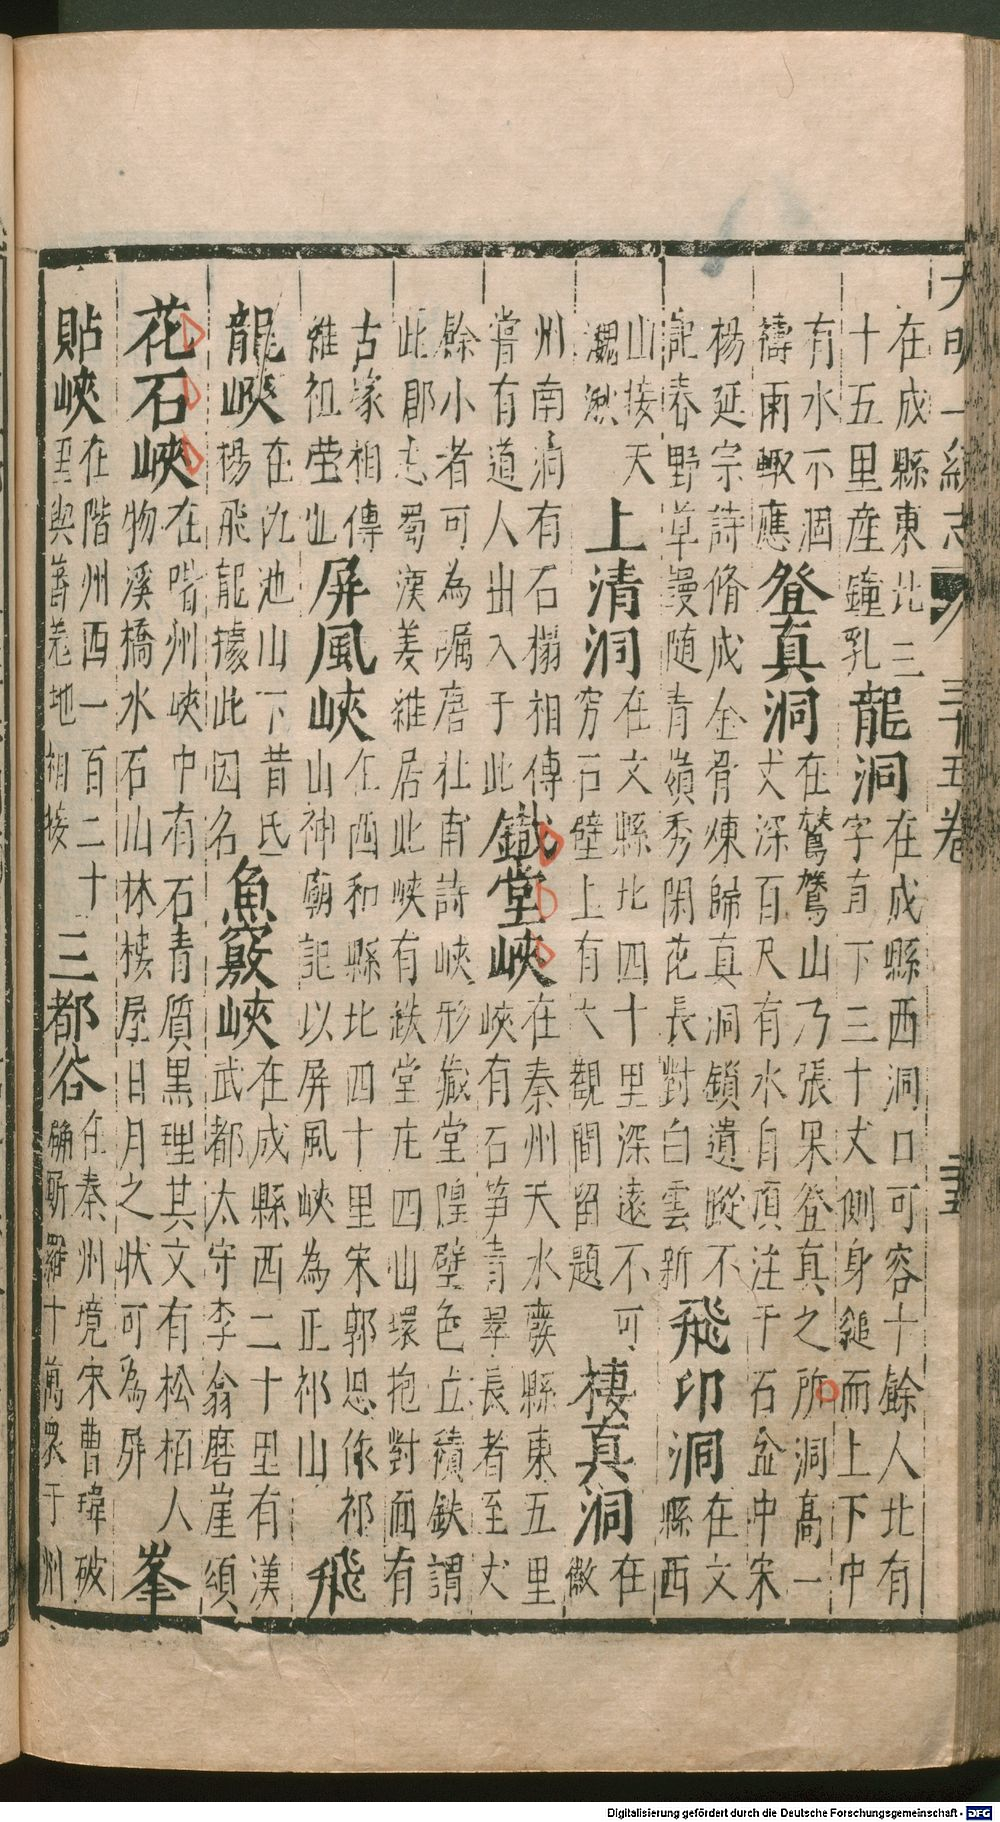 大明一統志 三十五卷 三五
在成縣東北三
十五里產鐘乳
龍洞
在成縣西洞口可容十餘人北有
字直下三十丈側身縋而上下中
有水不涸
禱雨輙應
登真洞
在鷲鷲山乃張果登真之所洞高一
丈深百尺有水自頂注于石盆中宋
楊延宗詩脩成金骨煉歸真洞鎖遺蹤不
記春野草漫隨青嶺秀閑花長對白雲新
飛卬洞
在文
縣西
山接天
湫
上清洞
在文縣北四十里深遠不可
窮石壁上有大觀間留題
棲真洞
在
徽
州南洞有石榻相傳
嘗有道人出入于此
鐵堂峽
在秦州天水廢縣東五里
峽有石笋青翠長者至丈
餘小者可為礪唐杜甫詩峽形藏堂隍壁色立積鉄謂
此郡志蜀漢姜維居此峽有鉄堂庄四山環抱對面有
古塚相傳
維祖塋也
屏風峽
在西和縣北四十里宋郭思作祁
山神廟記以屏風峽為正祁山
飛
龍峽
在氿池山下昔氐
楊飛龍據此因名
魚竅峽
在成縣西二十里有漢
武都太守李翕磨崖頌
花石峽
在階州峽中有石青質黑理其文有松栢人
物溪橋水石山林樓屋日月之狀可為屏
峯
貼峽
在階州西一百二十
里與舊羌地相接
三都谷
在秦州境宋曹瑋破
斯羅十萬衆于州
Digitalisierung gefördert durch die Deutsche Forschungsgemeinschaft - DFG